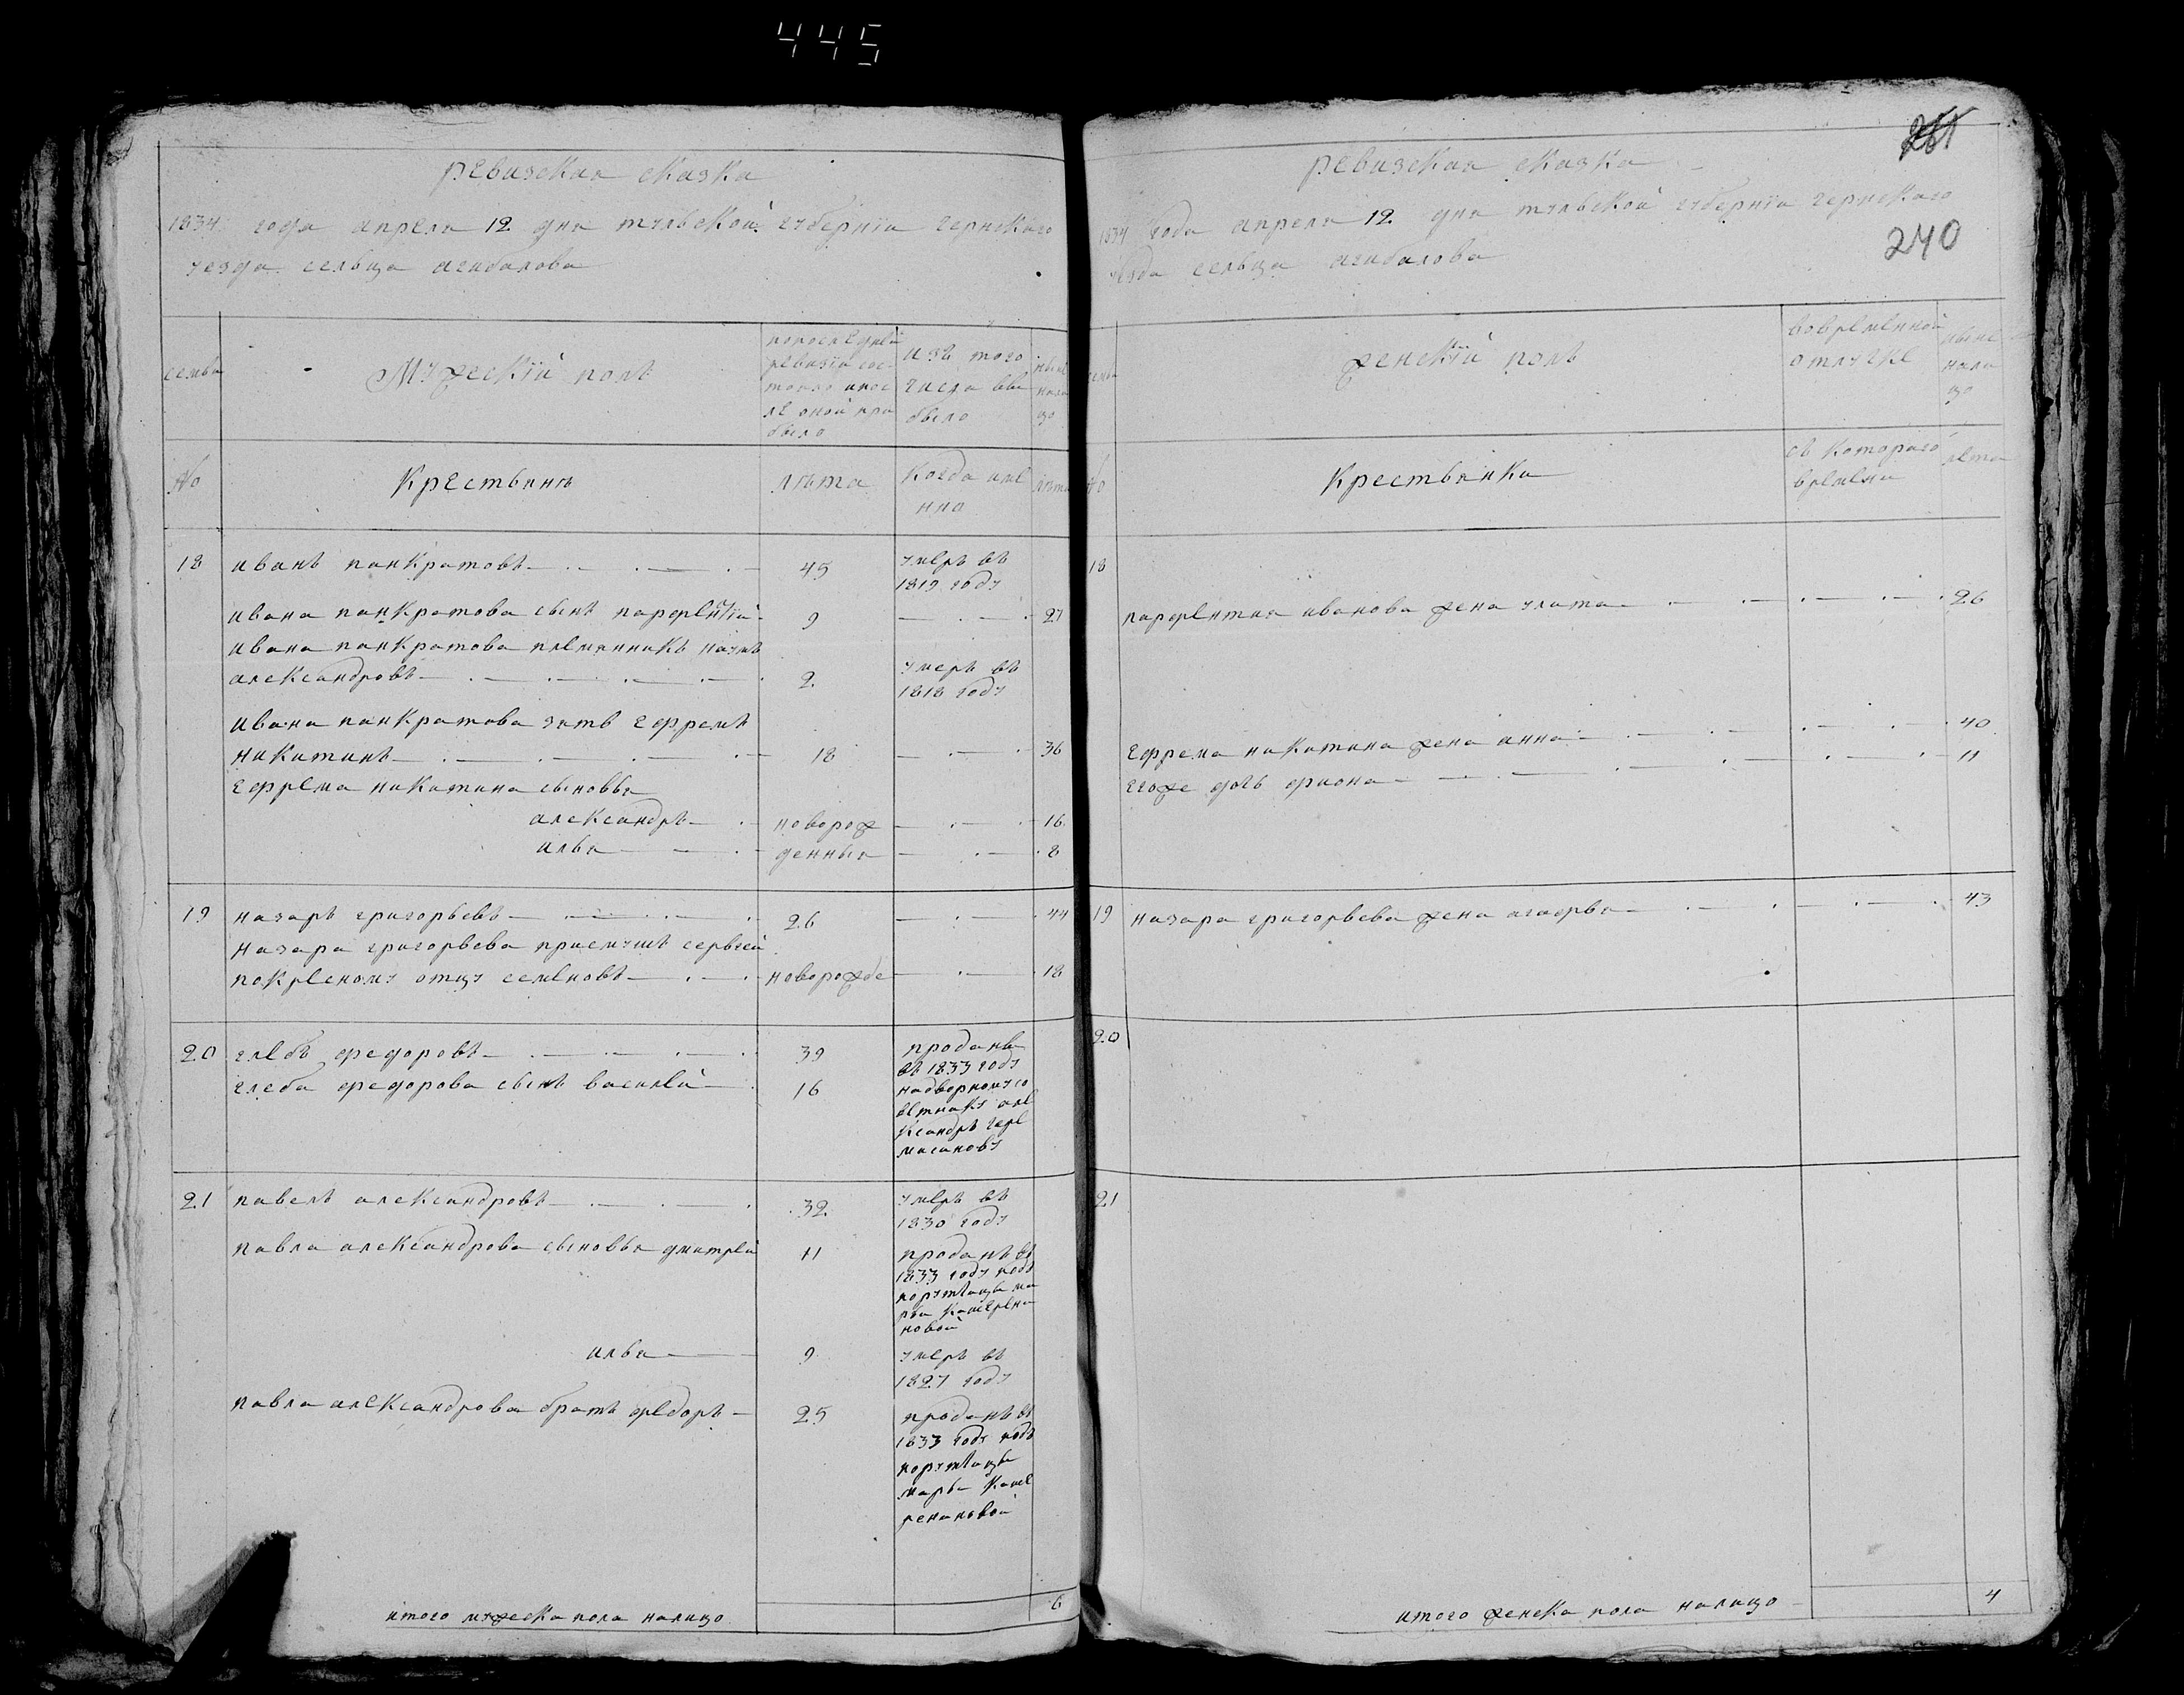 445
ревизская сказка
1834 года апреля 12 дня тульской губернїи чернскаго
уезда сельца агибалова
семьи
Мужескїй полъ
попоследней
ревизїи сос-
тояло ипос
ле оной при
было
изъ того
числа вы
было
ныне
нали
цо
№
Крестьянъ
лѣта
Когда име
нно
лѣта
18 иванъ панкратовъ 45 умеръ въ
1819 году
ивана панкратова сынъ парфентїй 9 27
ивана панкратова племянникъ наумъ
александровъ 2 умеръ въ
1818 году
ивана панкратова зять ефремъ
никитинъ 18 36
ефрема никитина сыновья
александръ новорож 16
илья денныя 8
19 назаръ григорьевъ 26 44
назара григорьева приемышъ сергей
покресному отцу семеновъ новорожде 18
20 глебъ федоровъ 39 проданы
въ 1833 году
глеба федорова сынъ василей 16 надворному со
ветнику але
ксандръ чере
мисинову
21 павелъ александровъ 32 умеръ въ
1830 году
павла александрова сыновья дмитрей 11 проданъ въ
1833 году подъ
порутчицы ма
рьи
новой
илья 9 умеръ въ
1827 году
павла александрова братъ федоръ 25 проданъ въ
1833 году подъ
порутчицы
марьи
итого мужеска пола налицо 6
261
240
ревизская сказка
1834 года апреля 12 дня тульской губернїи чернскаго
уезда сельца агибалова
семьи
женскїй полъ
вовременной
отлучке
ныне
нали
цо
№
Крестьянки
съ котораго
времени
лета
18
парфентия иванова жена улита 26
ефрема никитина жена анна 40
егоже дочь фиона 11
19 назара григорьева жена агафья 43
20
21
итого женска пола налицо 4